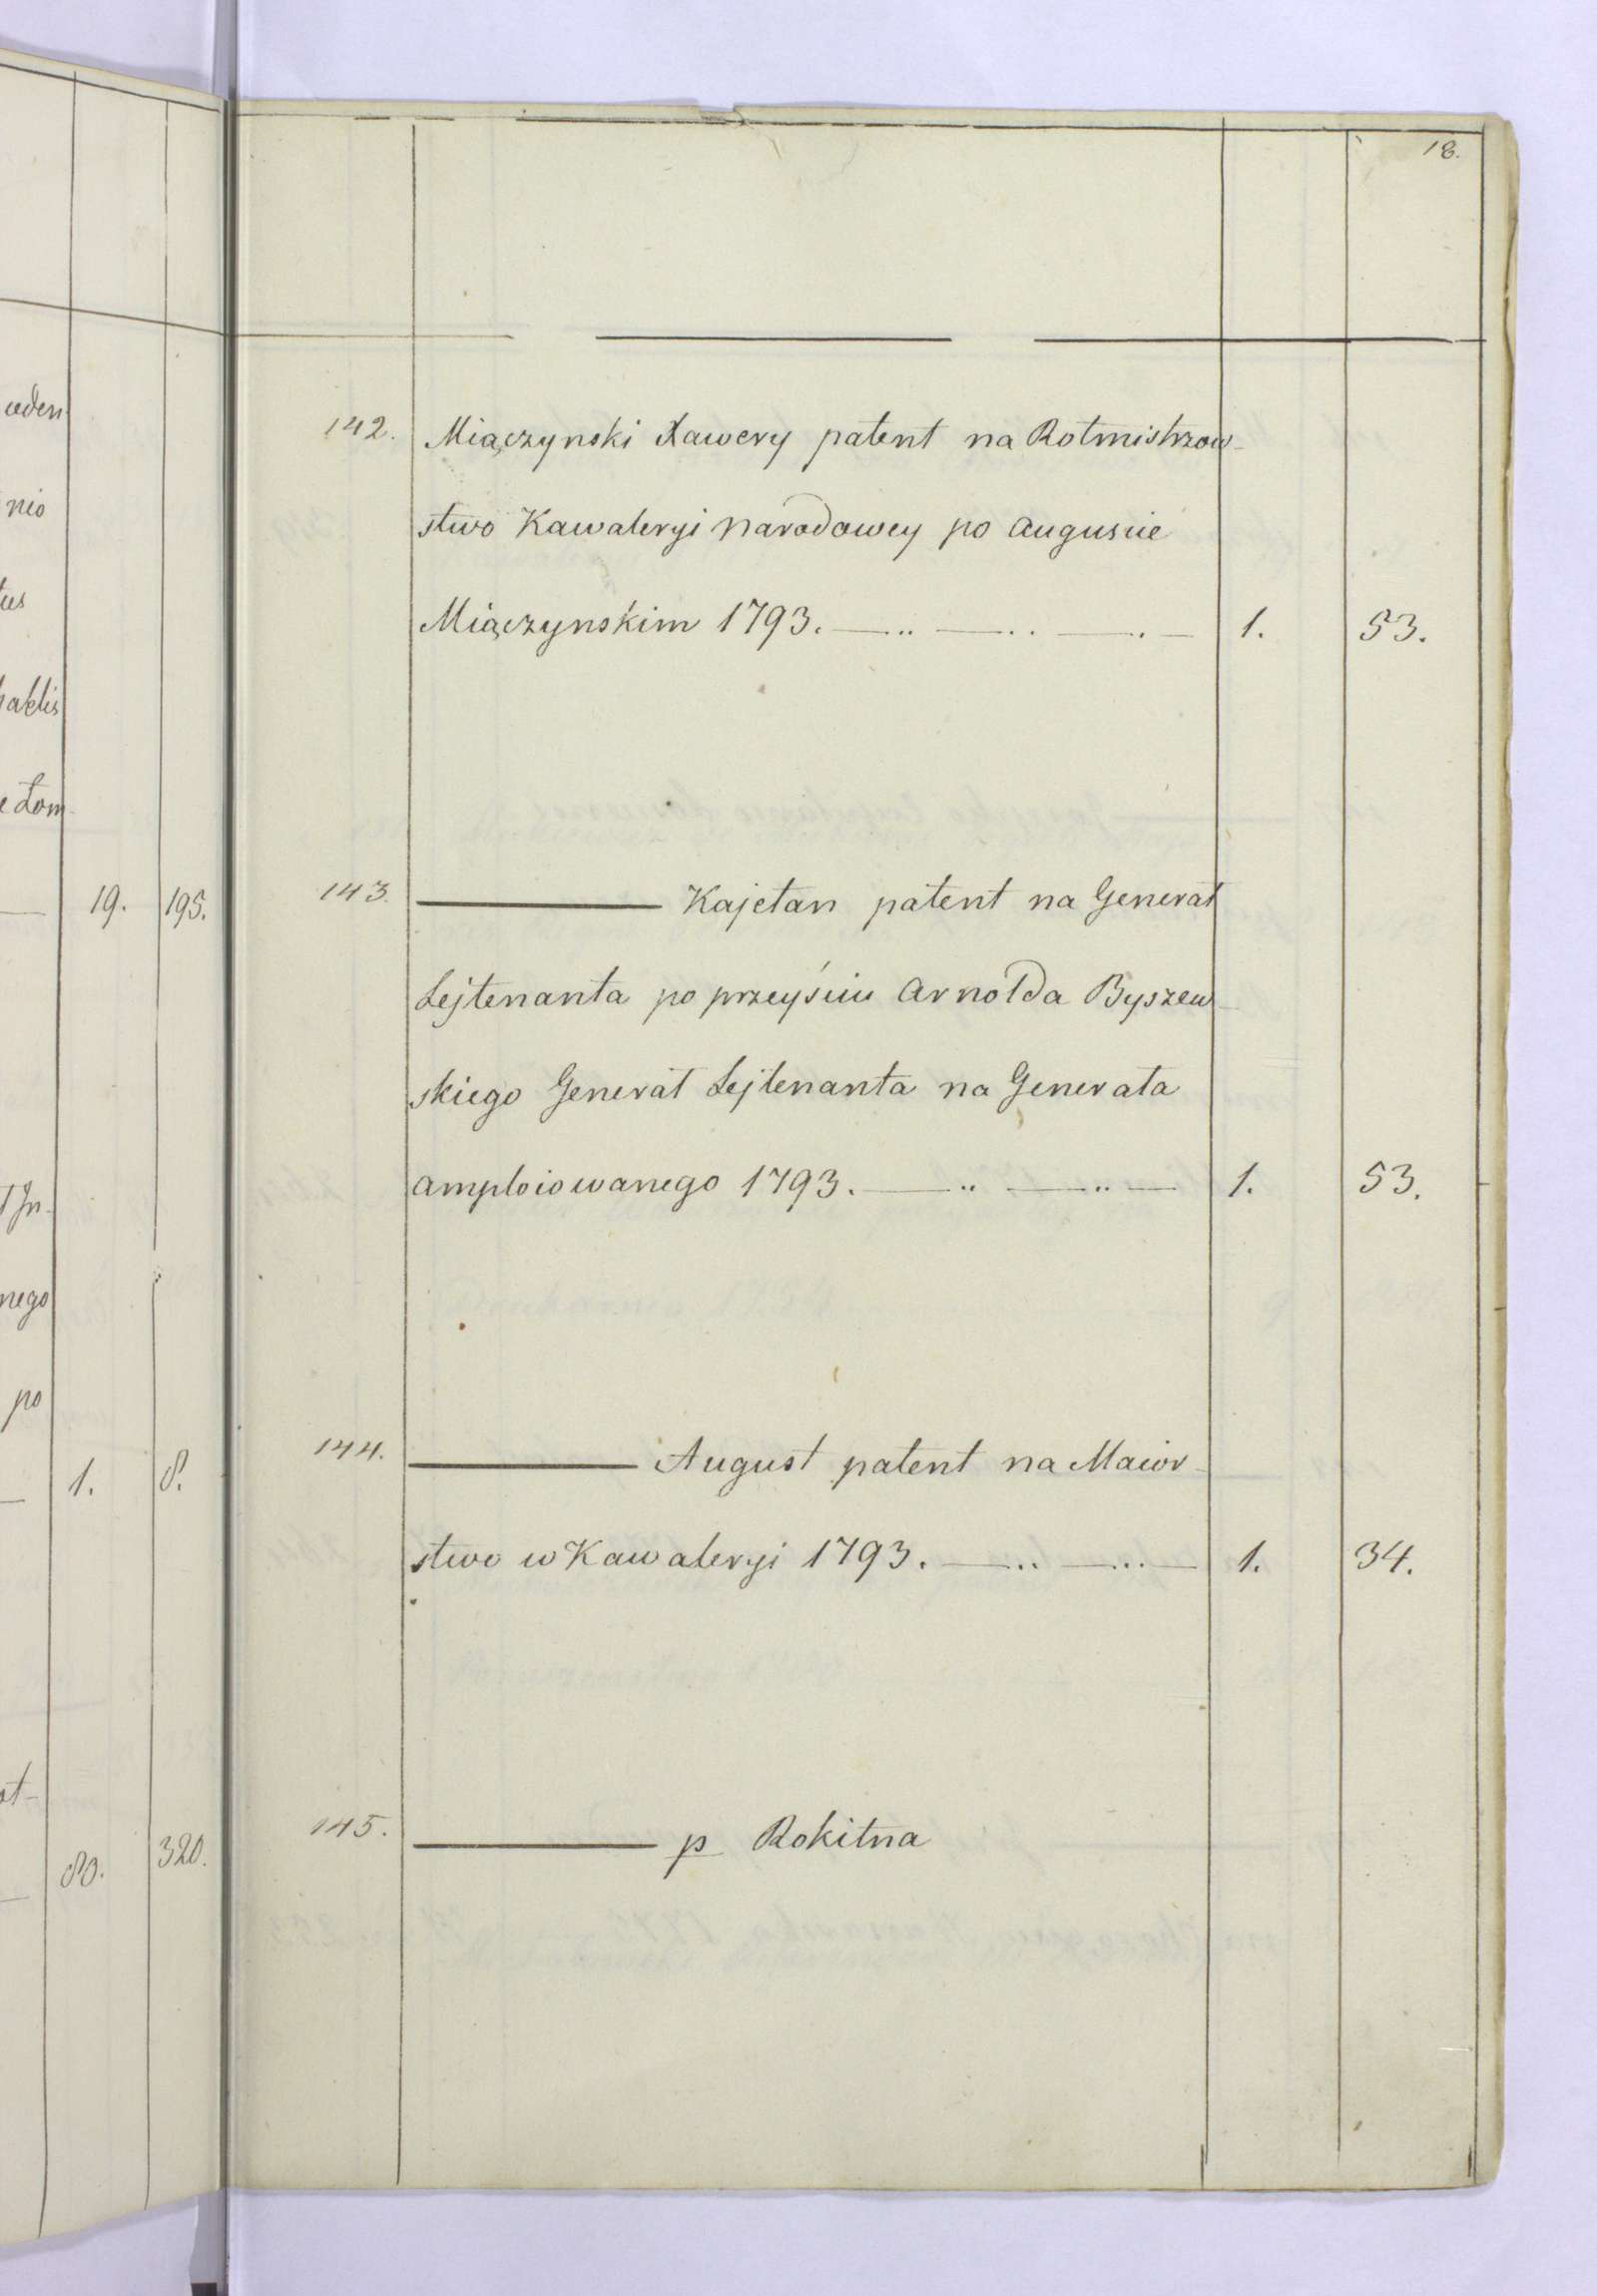 18.
uden
nio
tus
haktis
e Łom
19. 195.
nego
po
1. 8.
ot-
80. 320.
142. Miączynski Xawery patent na Rotmistrzow-
stwo Kawaleryi narodowey po Auguscie
Miączynskim 1793. 1. 53.
143. Kajetan patent na Generał
Lejtenanta po przeyściu Arnolda Byszew-
skiego Generał Lejtenanta na Generała
amploiowanego 1793. 1. 53.
144. August patent na Maior-
stwo w Kawaleryi 1793. 1. 34.
145. p Rokitna